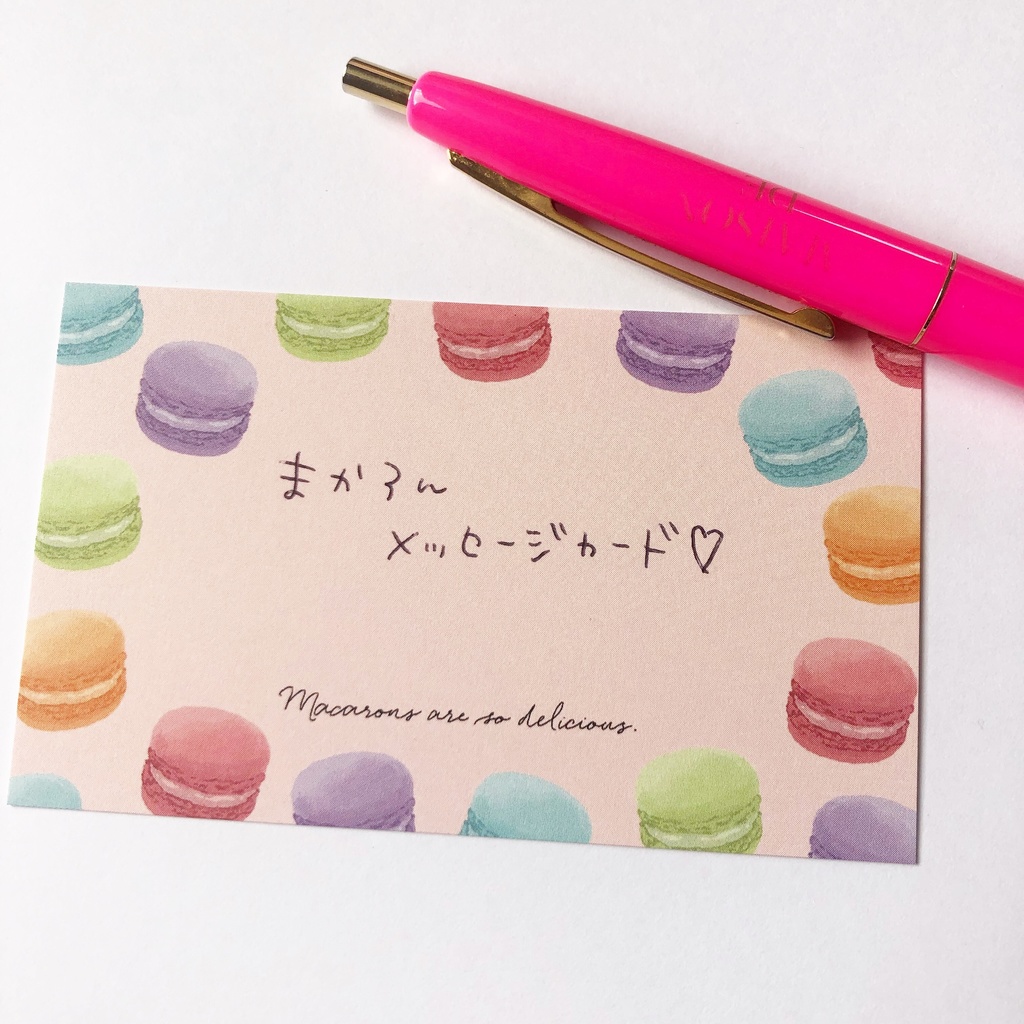 まかろん
メッセージカード♡
Macarons are so delicious.